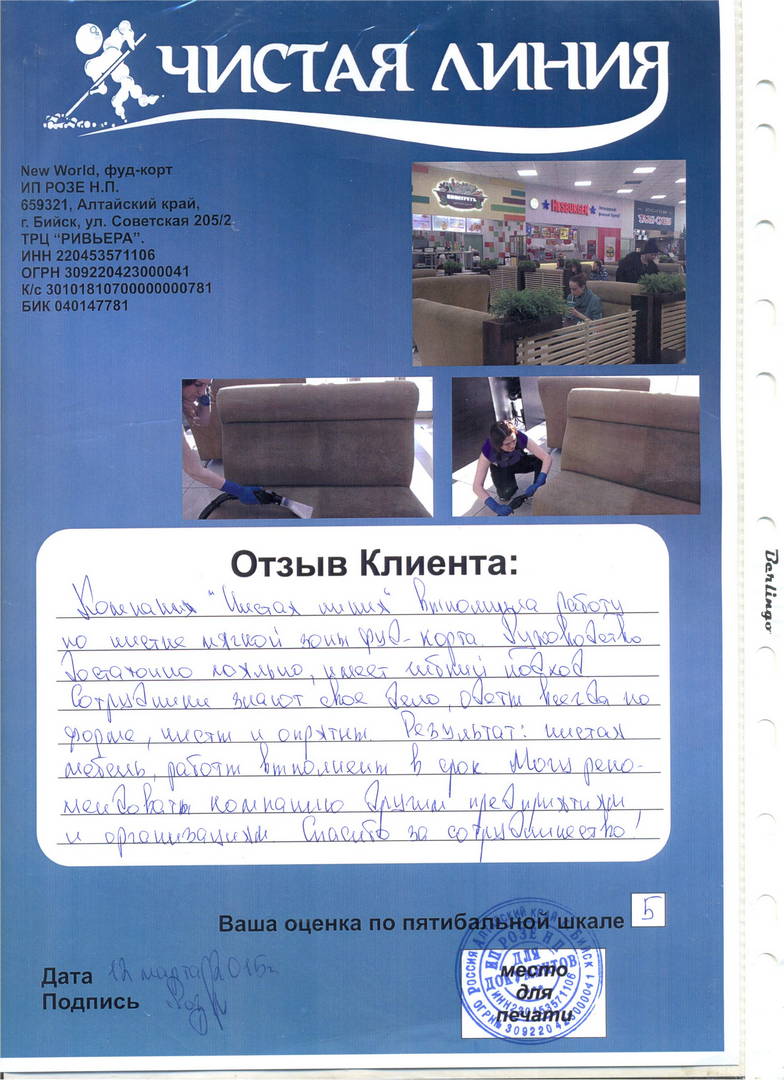 ЧИСТАЯ ЛИНИЯ
New World, фуд-корт
ИП РОЗЕ Н.П.
659321, Алтайский край,
г. Бийск, ул. Советская 205/2
ТРЦ “РИВЬЕРА”.
ИНН 220453571106
ОГРН 309220423000041
К/с 30101810700000000781
БИК 040147781
Отзыв Клиента:
Компания "Чистая линия" выполнила работу
по чистке мягкой зоны фуд-корта. Руководство
достаточно лояльно, имеет гибкий подход
Сотрудники знают свое дело, одеты всегда по
форме, чисты и опрятны. Результат: чистая
мебель, работы выполнены в срок. Могу реко-
мендовать компанию другим предприятиям
и организациям. Спасибо за сотрудничество!
Ваша оценка по пятибальной шкале 5
Дата 12 марта 2015г.
Подпись
место
для
печати
РОССИЯ АЛТАЙСКИЙ КРАЙ Г. БИЙСК
ИП РОЗЕ Н.П.
ДЛЯ
ДОКУМЕНТОВ
ИНН 220453571106
ОГРН 309220423000041
Berlingo